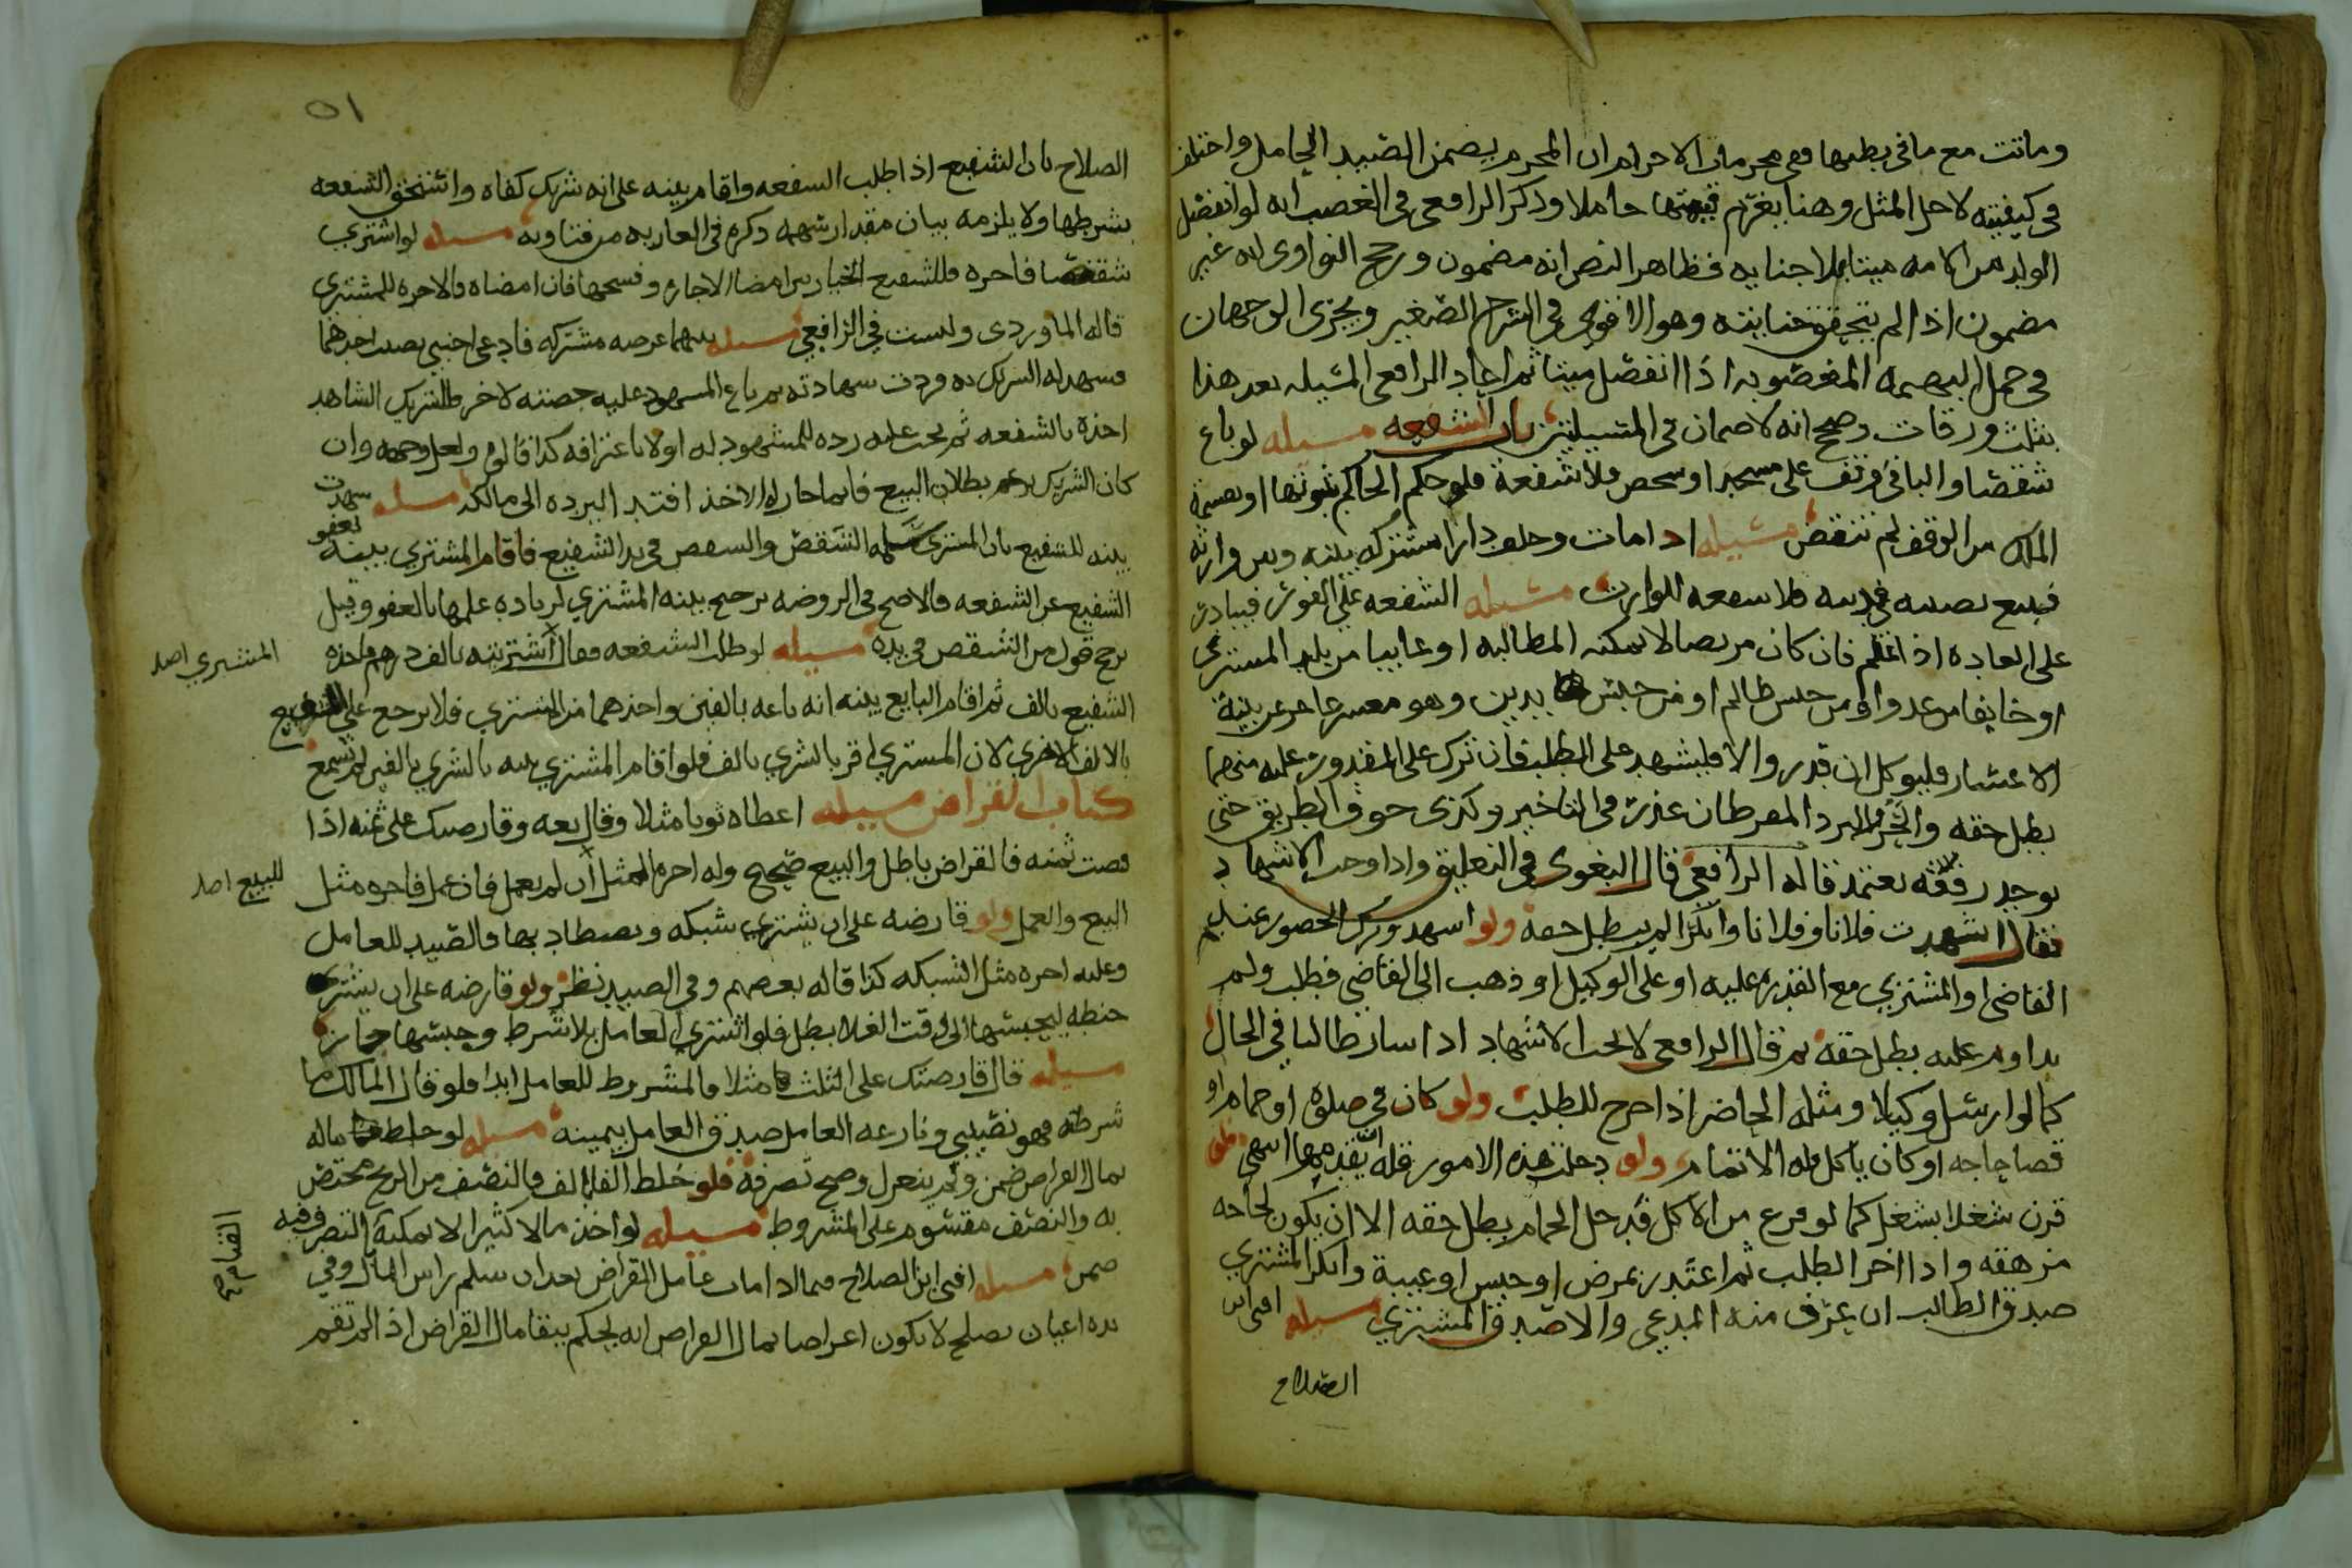 وماتت مع ما في بطنها ففي محرمات الاحرام ان المحرم يضمن الصيد الحامل واختلف
في كيفيته لاجل المثل وهنا يغرم قيمتها حاملا وذكر الرافعي في الغصب انه لو انفصل
الولد من الامه ميتا بلا جنايه فظاهر النص انه مضمون ورجح النواوي انه غير
مضمون اذا لم يتحقق حياته وهو الاقوى في الشرح الصغير ويجزي الوجهان
في حمل البهيمه المغصوبه اذا انفصل ميتا ثم اعاد الرافعي المسيله بعد هذا
بثلث ورقات وصحح انه لا ضمان في المسيلتين باب الشفعه مسيله لو باع
شقصا والباقي وقف على مسجد او شخص فلا شفعة فلو حكم الحاكم بثبوتها او بقسمة
الملك من الوقف لم تنقض مسيله اذا مات وخلف دارا مشتركه بينه وبين وارثه
فبيع نصيبه في دينه فلا شفعه للوارث مسيله الشفعه على الفور فيبادر
على العاده اذا علم فان كان مريضا لا يمكنه المطالبه او غايبا من بلد المشتري
او خايفا من عدو او من حبس ظالم او من حبس بدين وهو معسر عاجز عن بينة
الاعسار فليوكل ان قدر والا فليشهد على الطلب فان ترك على المقدور عليه منهما
بطل حقه والحر والبرد المفرطان عذر في التاخير وكذى خوف الطريق حتى
يوجد رفقه يعتمد قاله الرافعي قال البغوي في التعليق واذا وجب الاشهاد
فقال اشهدت فلانا وفلانا وانكرا لم يبطل حقه ولو اشهد وترك الحضور عند
القاضي او المشتري مع القدره عليه او على الوكيل او ذهب الى القاضي فطلب ولم
يداوم عليه بطل حقه ثم قال الرافعي لا يجب الاشهاد اذا سار طالبا في الحال
كما لو ارسل وكيلا ومثله الحاضر اذا خرج للطلب ولو كان في صلوة او حمام او
قضا حاجه او كان ياكل فله الاتمام ولو دخلت هذه الامور فله تقديمها انتهى فلو
قرن شغلا بشغل كما لو فرع من الاكل فدخل الحمام بطل حقه الا ان يكون لحاجه
مرهقه واذا اخر الطلب ثم اعتذر بمرض او حبس او غيبة وانكر المشتري
صدق الطالب ان عرف منه المدعى والا صدق المشتري مسيله افتى ابن
الصلاح
٥١
الصلاح بان الشفيع اذا طلب الشفعه واقام بينه على انه شريك كفاه واستحق الشفعه
بشرطها ولا يلزمه بيان مقدار سهمه ذكره في العاريه من فتاويه مسيله لو اشترى
شقصا فاجره فللشفيع الخيار بين امضا الاجاره وفسخها فان امضاه فالاجره للمشتري
قاله الماوردي وليست في الرافعي مسيله بينهما عرصه مشتركه فادعى اجنبي نصيب احدهما
فشهد له الشريك به وردت شهادته ثم باع المشهود عليه حصته لاخر فللشريك الشاهد
اخذه بالشفعه ثم يجب عليه رده للمشهود له اولا باعترافه كذا قالوه ولعل وجهه وان
كان الشريك يزعم بطلان البيع فانما جاز له الاخذ افتدا ليرده الى مالكه مسيله شهدت
بينه للشفيع بان المشتري سلمه الشقص والشقص في يد الشفيع فاقام المشتري بينة بعفو
الشفيع عن الشفعه فالاصح في الروضه ترجيح بينه المشتري لزياده علمها بالعفو وقيل
ترجح قول من الشقص في يده مسيله لو طلب الشفعه فقال اشتريته بالف درهم فاخذه
المشتري اصل
الشفيع بالف ثم اقام البايع بينه انه باعه بالفين واخذهما من المشتري فلا يرجع على الشفيع
بالالف الاخرى لان المشتري اقر بالشرى بالف فلو اقام المشتري بينه بالشرى بالفين لم تسمع
كتاب القراض مسيله اعطاه ثوبا مثلا وقال بعه وقارضتك على ثمنه اذا
قبضت ثمنه فالقراض باطل والبيع صحيح وله اجرة المثل ان لم يعمل فان عمل فاجره مثل
للبيع اصل
البيع والعمل ولو قارضه على ان يشتري شبكه ويصطاد بها فالصيد للعامل
وعليه اجره مثل الشبكه كذا قاله بعضهم وفي الصيد نظر ولو قارضه على ان يشتري
حنطه ليحبسها الى وقت الغلا بطل فلو اشترى العامل بلا شرط وحبسها جاز
مسيله قال قارضتك على الثلث مثلا فالمشروط للعامل ابدا فلو قال المالك ما
شرطته فهو نصيبي ونازعه العامل صدق العامل بيمينه مسيله لو خلط ماله
بمال القراض ضمن ولم ينعزل وصح تصرفه فلو خلط الفا بالف فالنصف من الربح مختص
به والنصف مقسوم على المشروط مسيله لو اخذ مالا كثيرا لا يمكنه التصرف فيه
ضمن مسيله افتى ابن الصلاح فيما اذا مات عامل القراض بعد ان سلم راس المال وفي
القيام صح
يده اعيان تصلح لا تكون اعراضا بمال القراض انه يحكم ببقا مال القراض اذا لم تقم